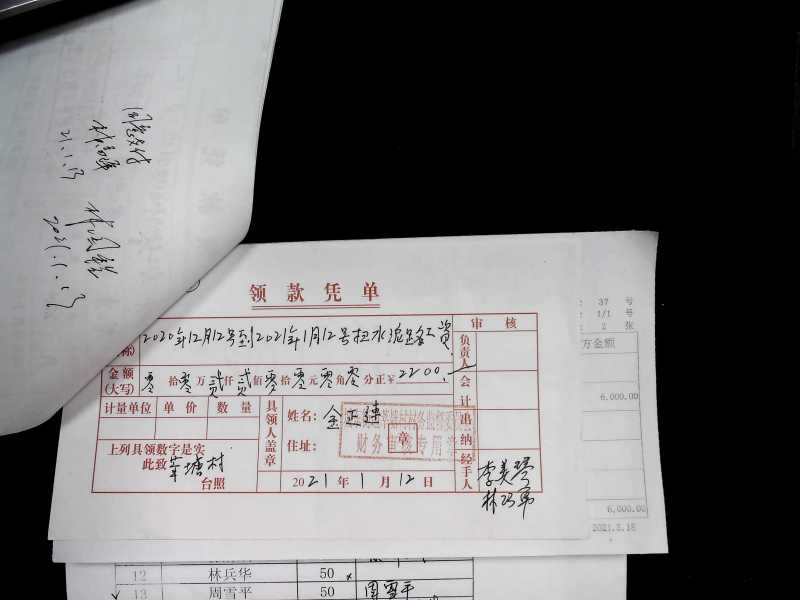 同意支付
21.1.13
2021.1.13
领款凭单
审核
2020年12月12号到2021年1月12号扫水泥路工资
称)
负责人
金额
(大写)
零拾零万贰仟贰佰零拾零元零角零分正¥2200.
会计
计量单位 单价 数量
具领人盖章
姓名:
住址:
财务审核专用章
章
出纳
上列具领数字是实
此致
塘村
台照
2021年1月12日
经手人
李美琴
37 号
1/1 号
2 张
方金额
6,000.00
6,000.00
2021.3.18
12 林兵华 50
13 周雪平 50 周雪平